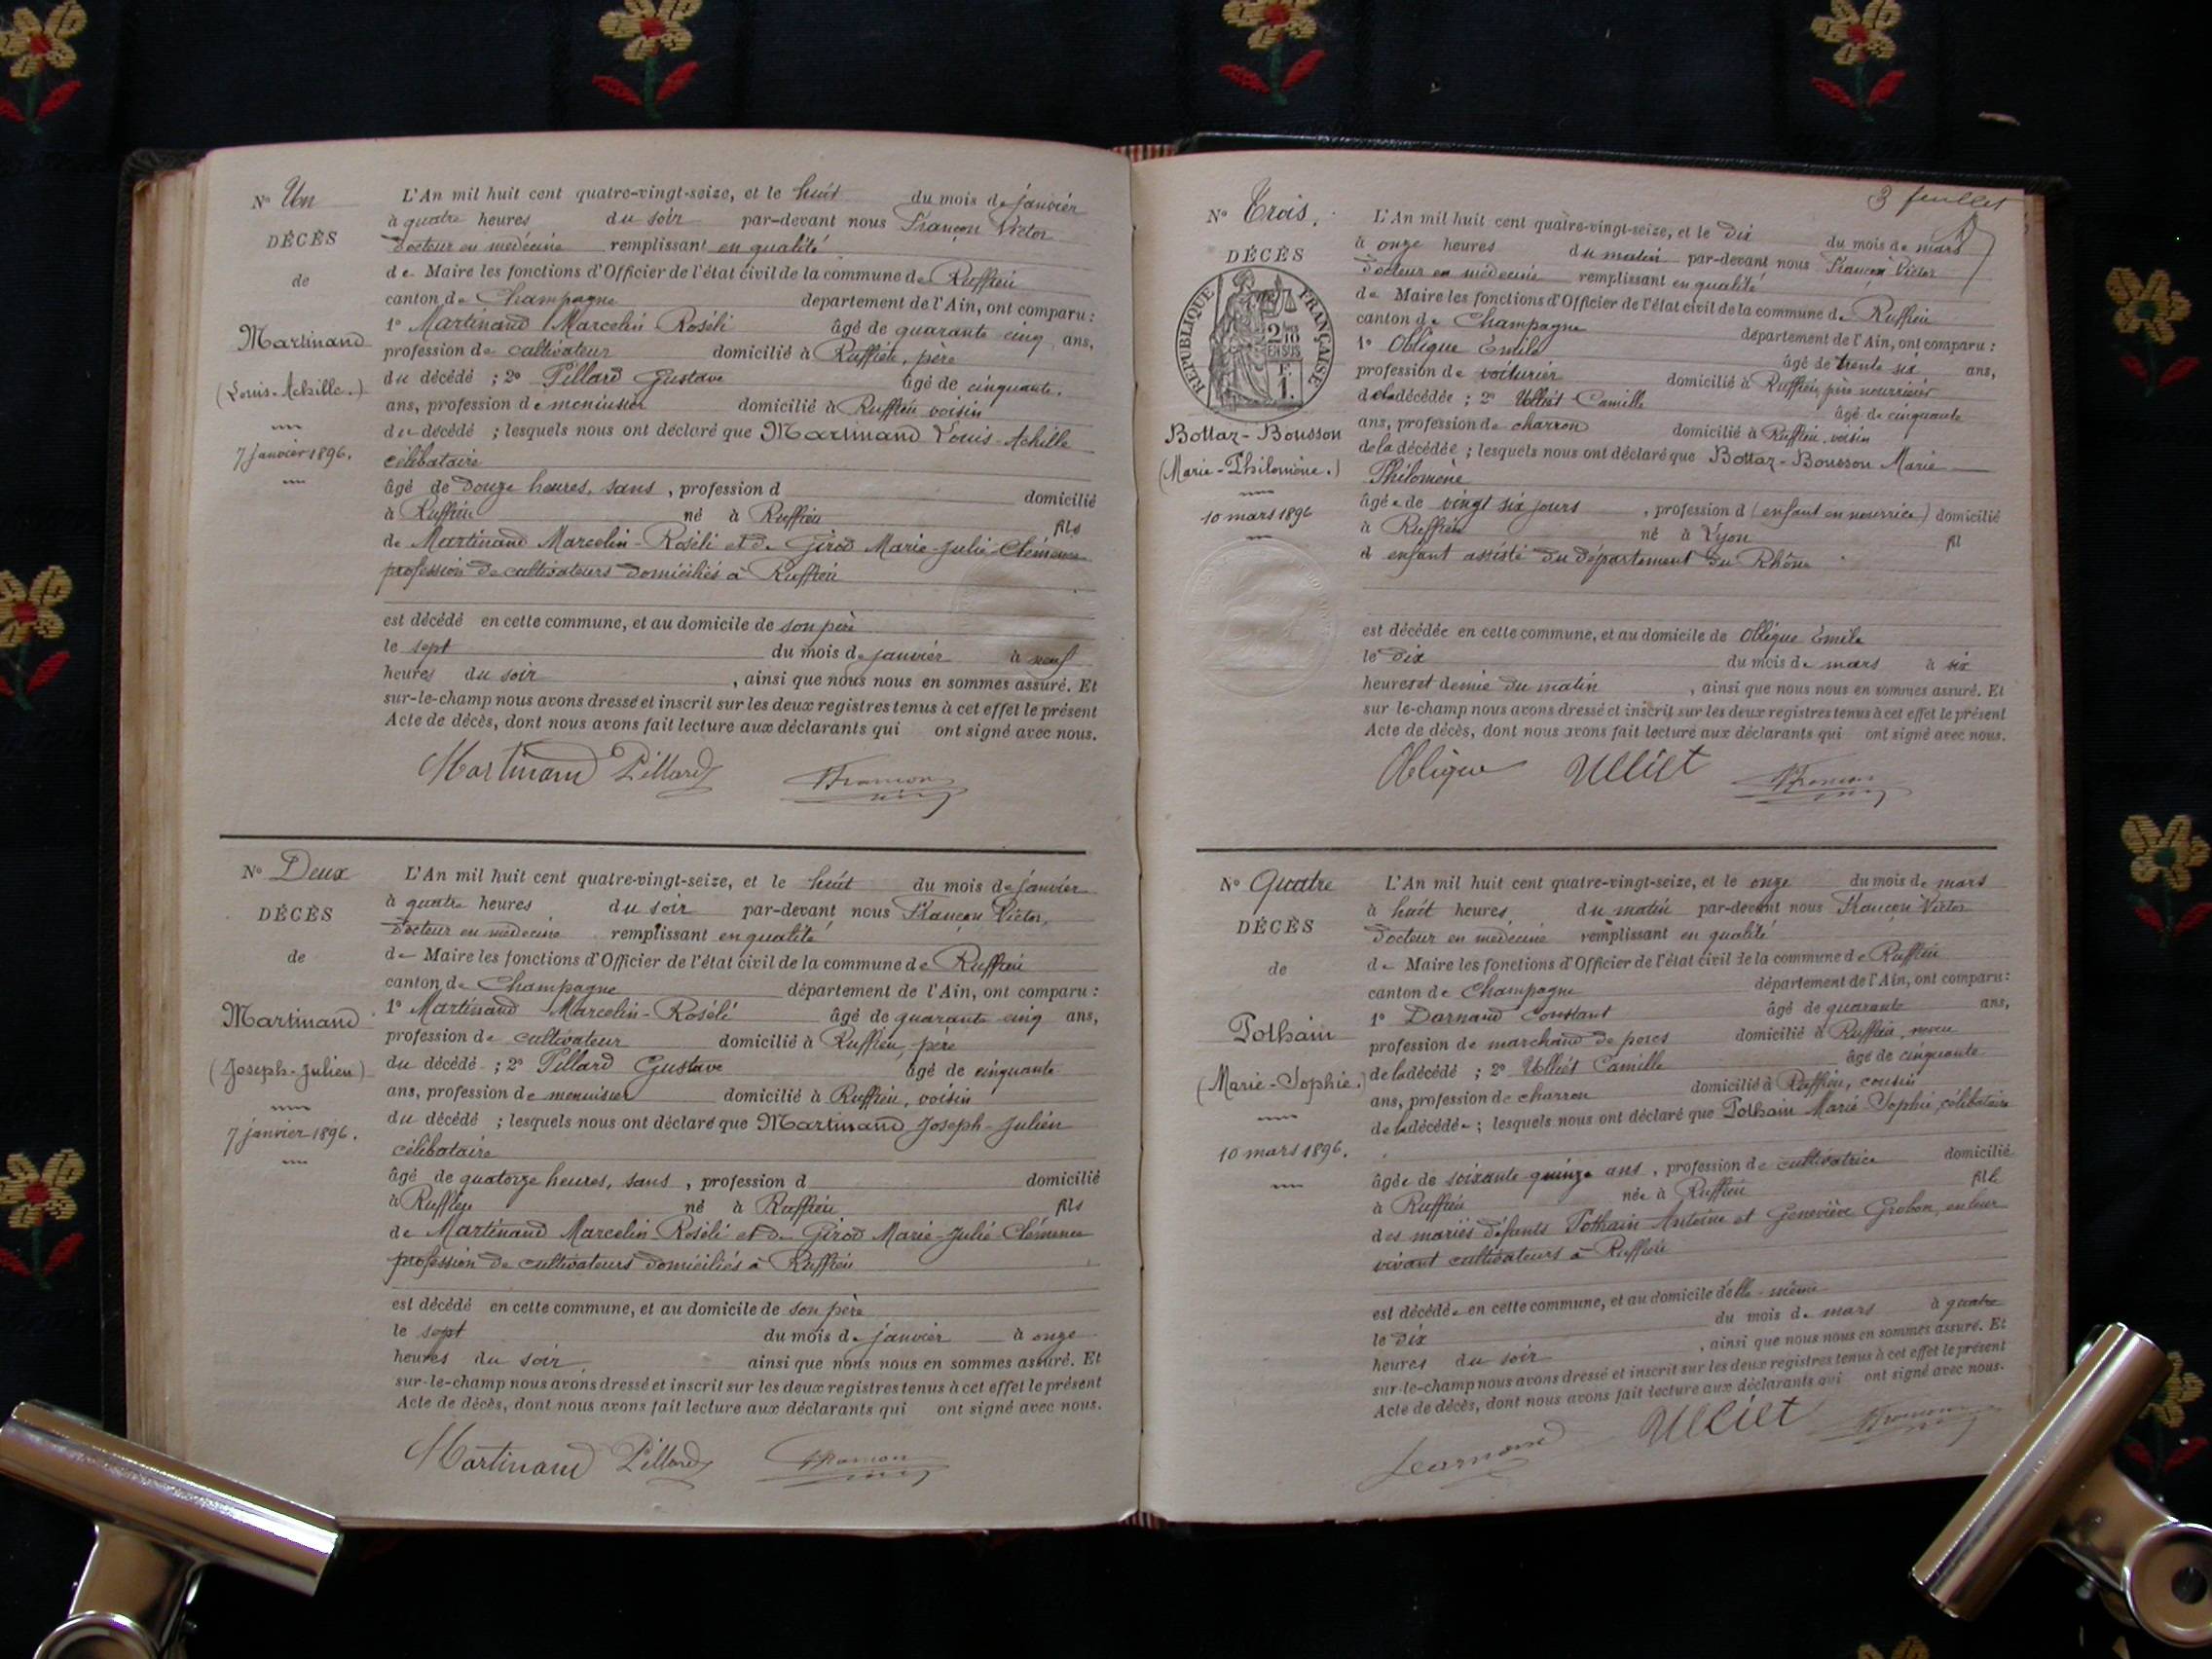 N° Un
DÉCÈS
de
Martinand
(Louis-Achille.)
7 janvier 1896.
L'An mil huit cent quatre-vingt-seize, et le huit du mois de janvier
à quatre heures du soir par-devant nous Françon Victor
docteur en médecine remplissant en qualité
de Maire les fonctions d'Officier de l'état civil de la commune de Ruffieu
canton de Champagne département de l'Ain, ont comparu :
1° Martinand Marcelin Roséli âgé de quarante cinq ans,
profession de cultivateur domicilié à Ruffieu, père
du décédé ; 2° Pillard Gustave âgé de cinquante.
ans, profession de menuisier domicilié à Ruffieu voisin
du décédé ; lesquels nous ont déclaré que Martinand Louis-Achille
célibataire
âgé de douze heures, sans, profession d domicilié
à Ruffieu né à Ruffieu fils
de Martinand Marcelin-Roséli et de Girod Marie-Julie-Clémence
profession de cultivateurs domiciliés à Ruffieu
est décédé en cette commune, et au domicile de son père
le sept du mois de janvier à neuf
heures du soir, ainsi que nous nous en sommes assuré. Et
sur-le-champ nous avons dressé et inscrit sur les deux registres tenus à cet effet le présent
Acte de décès, dont nous avons fait lecture aux déclarants qui ont signé avec nous.
Martinand Pillard Françon
N° Deux
DÉCÈS
de
Martinand
(Joseph-Julien)
7 janvier 1896.
L'An mil huit cent quatre-vingt-seize, et le huit du mois de janvier
à quatre heures du soir par-devant nous Françon Victor,
docteur en médecine remplissant en qualité
de Maire les fonctions d'Officier de l'état civil de la commune de Ruffieu
canton de Champagne département de l'Ain, ont comparu :
1° Martinand Marcelin-Roséli âgé de quarante cinq ans,
profession de cultivateur domicilié à Ruffieu, père
du décédé ; 2° Pillard Gustave âgé de cinquante
ans, profession de menuisier domicilié à Ruffieu, voisin
du décédé ; lesquels nous ont déclaré que Martinand Joseph-Julien
célibataire
âgé de quatorze heures, sans, profession d domicilié
à Ruffieu né à Ruffieu fils
de Martinand Marcelin Roséli et de Girod Marie-Julie Clémence
profession de cultivateurs domiciliés à Ruffieu
est décédé en cette commune, et au domicile de son père
le sept du mois de janvier à onze
heures du soir ainsi que nous nous en sommes assuré. Et
sur-le-champ nous avons dressé et inscrit sur les deux registres tenus à cet effet le présent
Acte de décès, dont nous avons fait lecture aux déclarants qui ont signé avec nous.
Martinand Pillard Françon
3 feuillet
N° Trois.
DÉCÈS
RÉPUBLIQUE FRANÇAISE
2/10
EN SUS
F.
1.
Bottaz-Bousson
(Marie-Philomène.)
10 mars 1896
L'An mil huit cent quatre-vingt-seize, et le dix du mois de mars
à onze heures du matin par-devant nous Françon Victor
docteur en médecine remplissant en qualité
de Maire les fonctions d'Officier de l'état civil de la commune de Ruffieu
canton de Champagne département de l'Ain, ont comparu :
1° Oblique Emile âgé de trente six ans,
profession de voiturier domicilié à Ruffieu, père nourricier
de la décédée ; 2° Ulliet Camille âgé de cinquante
ans, profession de charron domicilié à Ruffieu voisin
de la décédée ; lesquels nous ont déclaré que Bottaz-Bousson Marie
Philomène
âgée de vingt six jours, profession d (enfant en nourrice) domicilié
à Ruffieu né à Lyon fil
d enfant assisté du département du Rhône
est décédée en cette commune, et au domicile de Oblique Emile
le dix du mois de mars à six
heures et demie du matin, ainsi que nous nous en sommes assuré. Et
sur-le-champ nous avons dressé et inscrit sur les deux registres tenus à cet effet le présent
Acte de décès, dont nous avons fait lecture aux déclarants qui ont signé avec nous.
Oblique Ulliet Françon
N° Quatre
DÉCÈS
de
Pothain
(Marie-Sophie.)
10 mars 1896.
L'An mil huit cent quatre-vingt-seize, et le onze du mois de mars
à huit heures du matin par-devant nous Françon Victor
docteur en médecine remplissant en qualité
de Maire les fonctions d'Officier de l'état civil de la commune de Ruffieu
canton de Champagne département de l'Ain, ont comparu :
1° Darnand Constant âgé de quarante ans,
profession de marchand de porcs domicilié à Ruffieu, neveu
de la décédé ; 2° Ulliet Camille âgé de cinquante
ans, profession de charron domicilié à Ruffieu, cousin
de la décédée ; lesquels nous ont déclaré que Pothain Marie Sophie, célibataire
âgée de soixante quinze ans, profession de cultivatrice domicilié
à Ruffieu née à Ruffieu fille
des mariés défunts Pothain Antoine et Geneviève Grobon, en leur
vivant cultivateurs à Ruffieu
est décédée en cette commune, et au domicile d'elle-même
le dix du mois de mars à quatre
heures du soir, ainsi que nous nous en sommes assuré. Et
sur-le-champ nous avons dressé et inscrit sur les deux registres tenus à cet effet le présent
Acte de décès, dont nous avons fait lecture aux déclarants qui ont signé avec nous.
Ulliet Françon